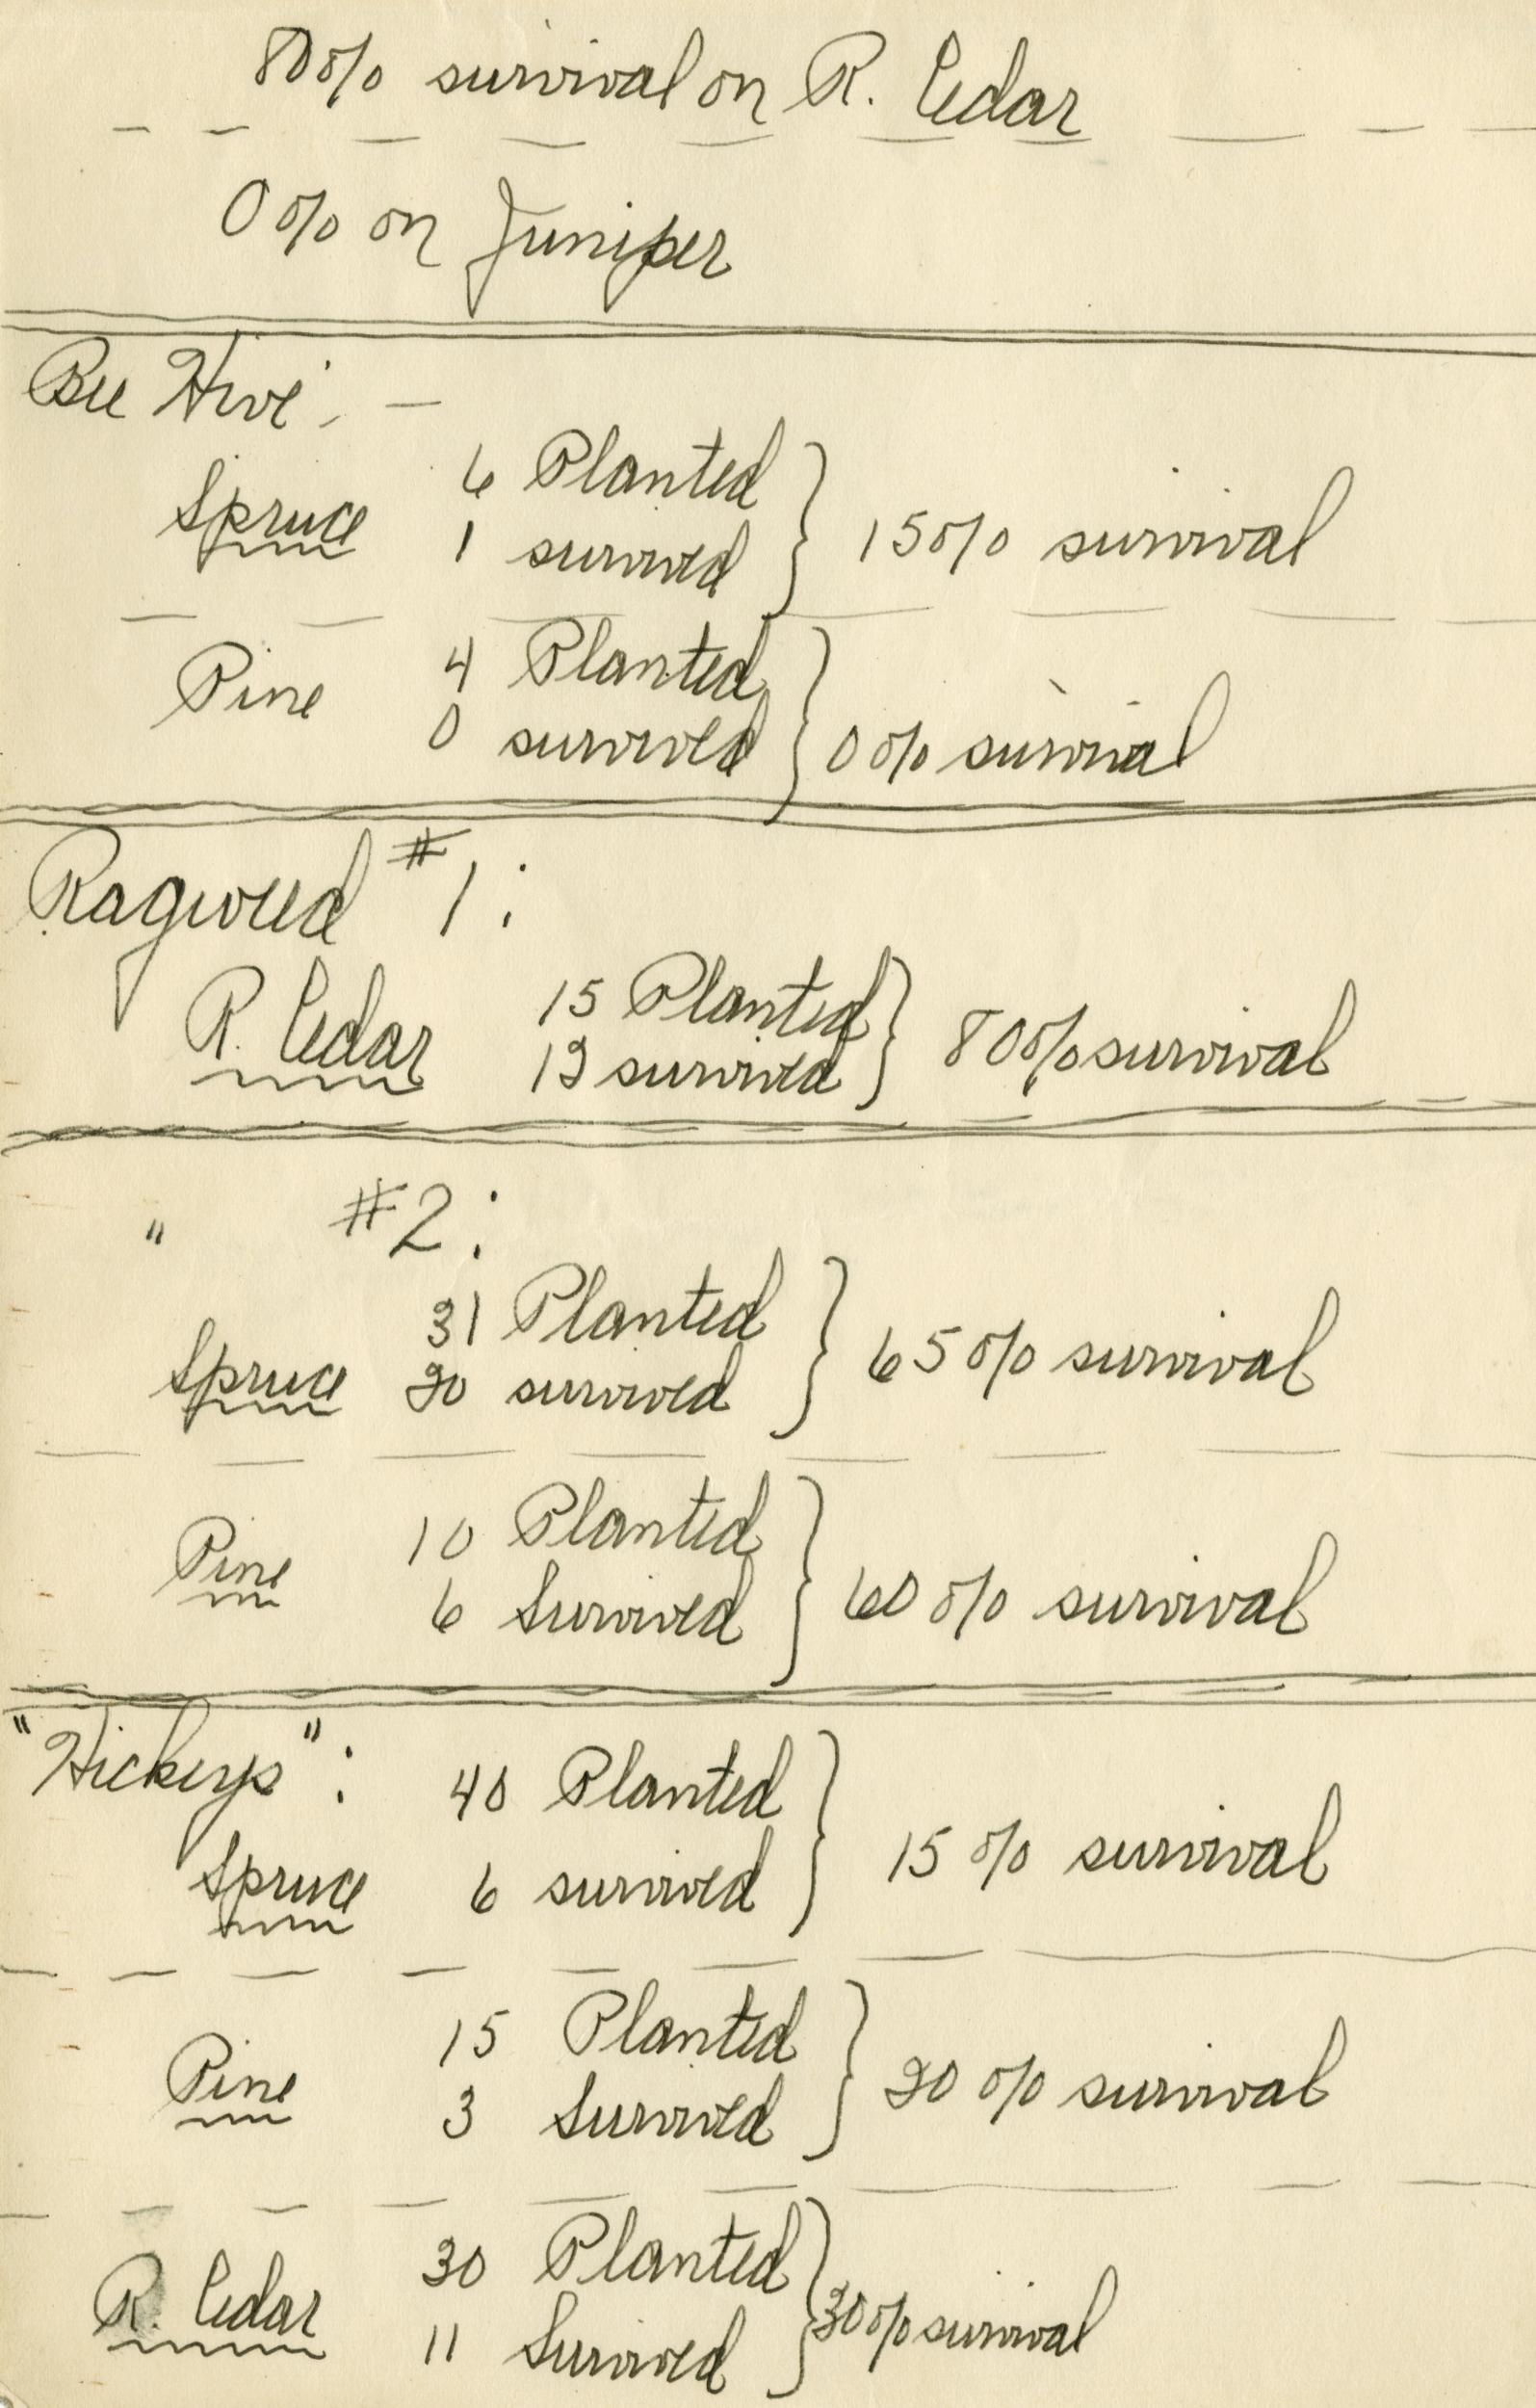 80% survival on R. Cedar
0% on Juniper
Bee Hive: —
6 Planted
Spruce 1 survived } 15% survival
Pine 4 Planted
0 survived } 0% survival
Ragweed #1:
R. Cedar 15 Planted
12 survived } 80% survival
" #2:
31 Planted
Spruce 20 survived } 65% survival
Pine 10 Planted
6 Survived } 60% survival
"Hickeys": 40 Planted
Spruce 6 survived } 15% survival
Pine 15 Planted
3 Survived } 20% survival
R. Cedar 30 Planted
11 Survived } 30% survival